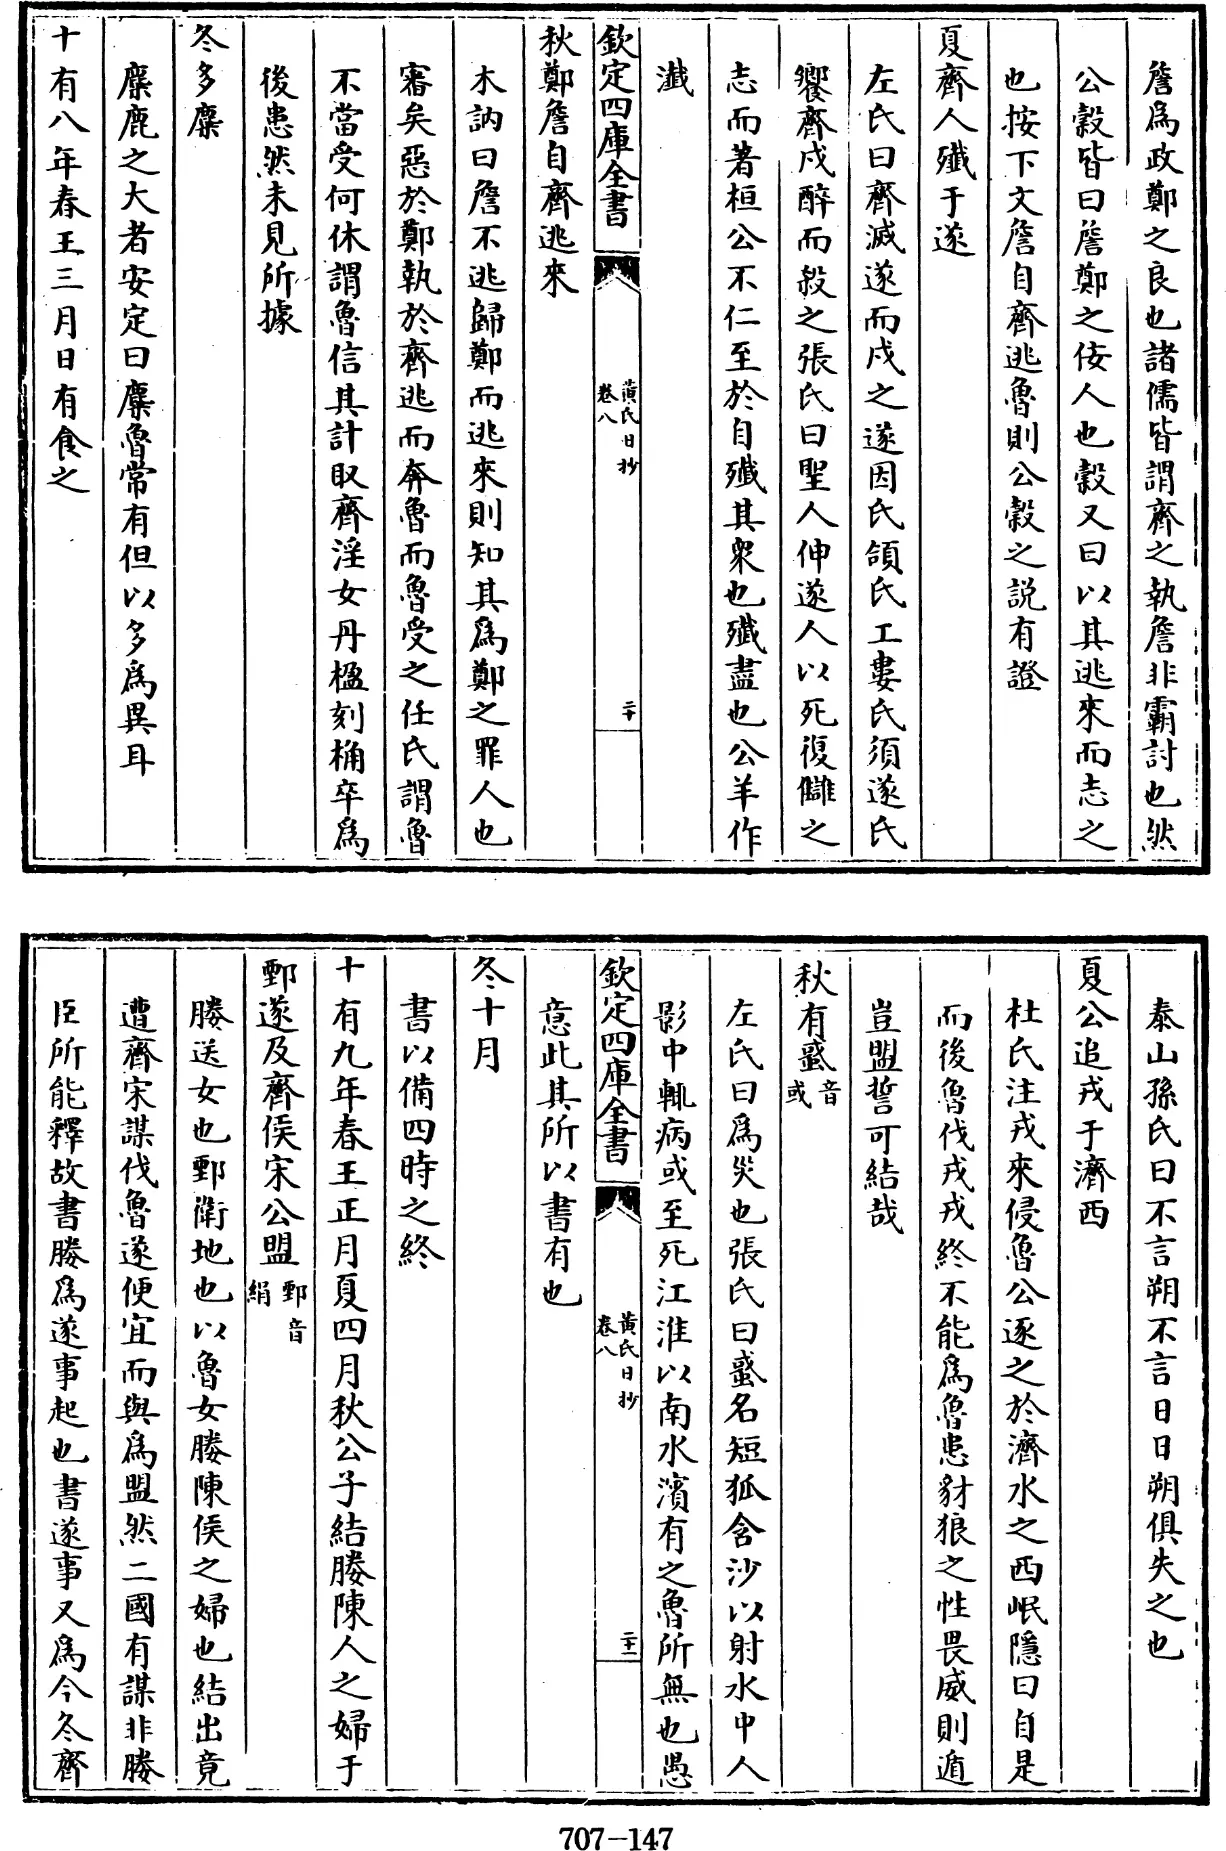 詹爲政鄭之良也諸儒皆謂齊之執詹非霸討也然
公穀皆曰詹鄭之佞人也穀又曰以其逃來而志之
也按下文詹自齊逃魯則公穀之説有證
夏齊人殱于遂
左氏曰齊滅遂而戍之遂因氏頜氏工婁氏須遂氏
饗齊戍醉而殺之張氏曰聖人伸遂人以死復讎之
志而著桓公不仁至於自殱其衆也殱盡也公羊作
瀸
欽定四庫全書
黄氏日抄
卷八
二十
秋鄭詹自齊逃來
木訥曰詹不逃歸鄭而逃來則知其爲鄭之罪人也
審矣惡於鄭執於齊逃而奔魯而魯受之任氏謂魯
不當受何休謂魯信其計取齊淫女丹楹刻桷卒爲
後患然未見所據
冬多麋
麋鹿之大者安定曰麋魯常有但以多爲異耳
十有八年春王三月日有食之
泰山孫氏曰不言朔不言日日朔俱失之也
夏公追戎于濟西
杜氏注戎來侵魯公逐之於濟水之西岷隱曰自是
而後魯伐戎戎終不能爲魯患豺狼之性畏威則遁
豈盟誓可結哉
秋有蜮音或
左氏曰爲災也張氏曰蜮名短狐含沙以射水中人
影中輒病或至死江淮以南水濱有之魯所無也愚
欽定四庫全書
黄氏日抄
卷八
二十一
意此其所以書有也
冬十月
書以備四時之終
十有九年春王正月夏四月秋公子結媵陳人之婦于
鄄遂及齊侯宋公盟鄄音絹
媵送女也鄄衛地也以魯女媵陳侯之婦也結出竟
遭齊宋謀伐魯遂便宜而與爲盟然二國有謀非媵
臣所能釋故書媵爲遂事起也書遂事又爲今冬齊
707-147